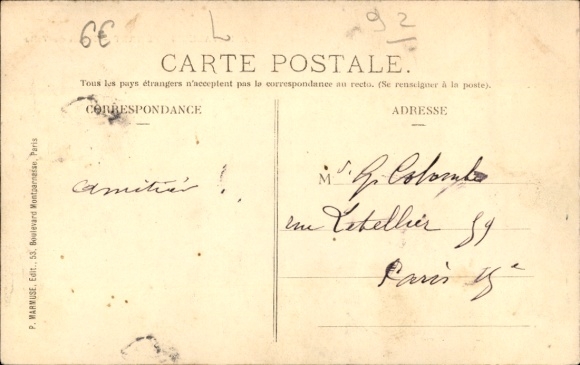 6€ L 92
CARTE POSTALE.
Tous les pays étrangers n'acceptent pas la correspondance au recto. (Se renseigner à la poste).
CORRESPONDANCE
ADRESSE
Amitiés !
M G. Colombe
rue Letellier 59
Paris 15e
P. MARMUSE, Edit., 53, Boulevard Montparnasse, Paris